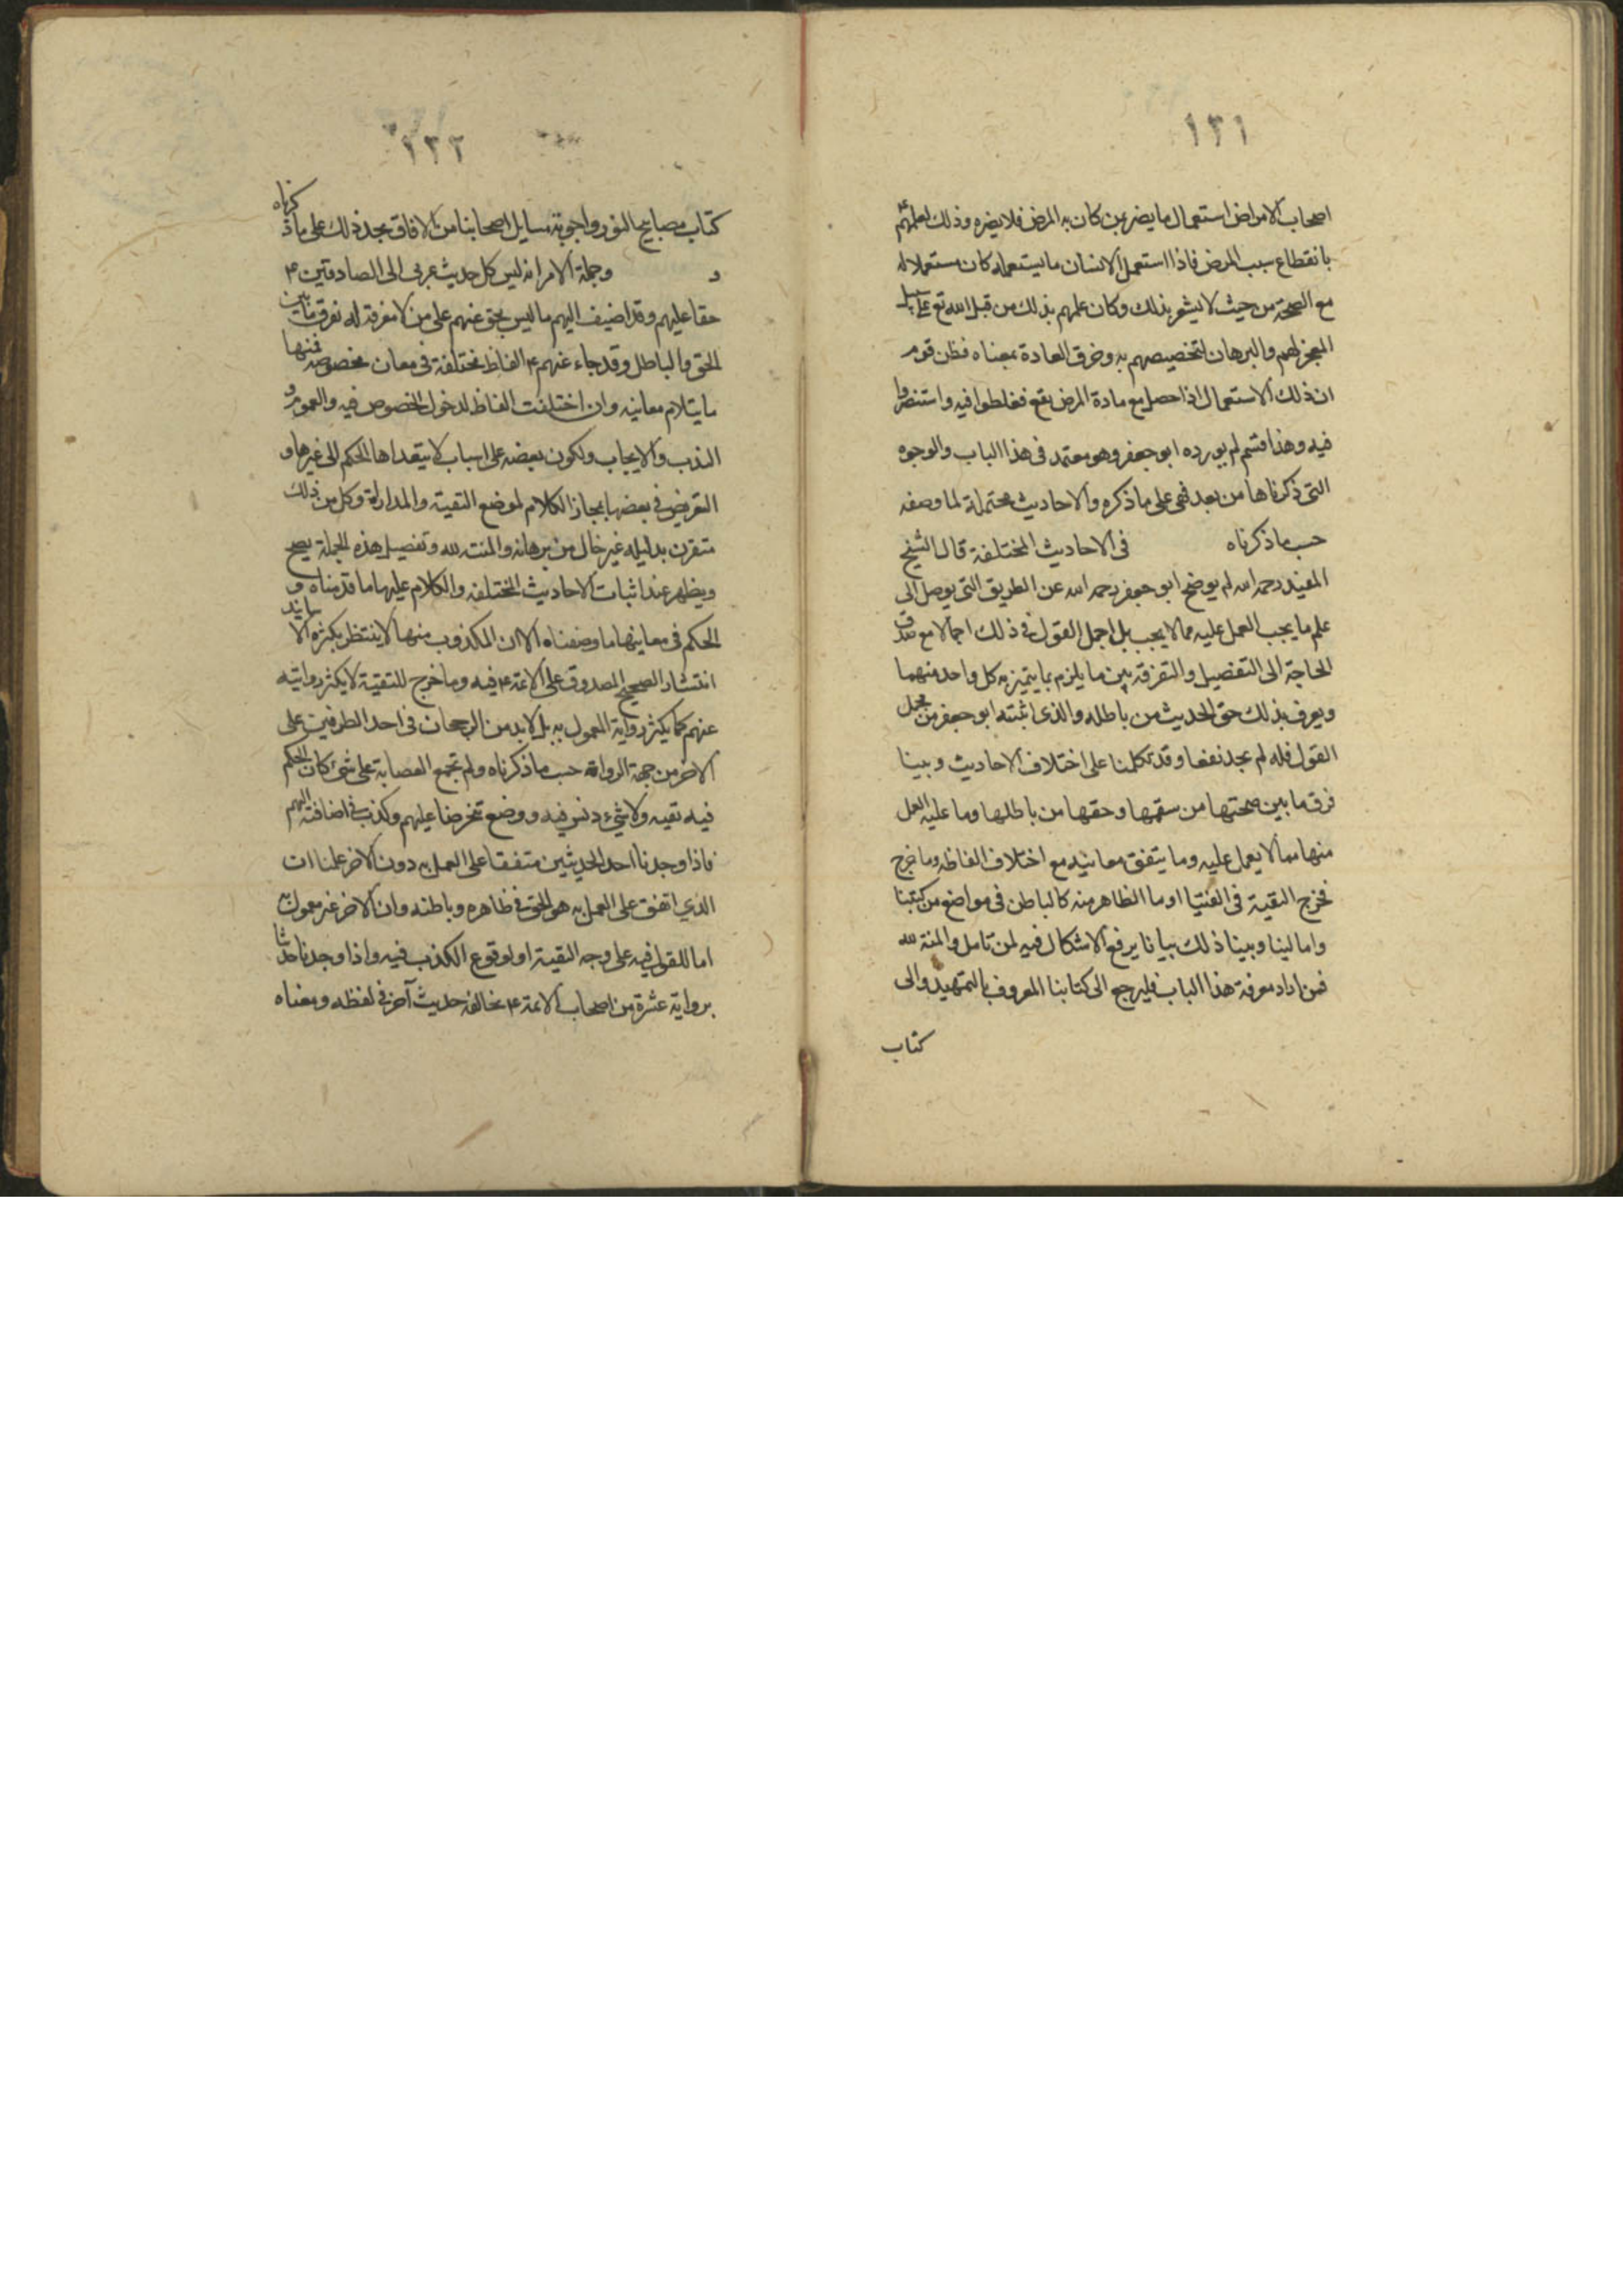 ١٣١
اصحاب الامراض استعمال ما يضر بمن كان به المرض فلا يضره وذلك لعلمهم
بانقطاع سبب المرض فاذا استعمل الانسان ما يستعمله كان مستعملا له
مع الصحة من حيث لا يشعر بذلك وكان علمهم بذلك من قبل الله تع على سبيل
المعجز لهم والبرهان لتخصيصهم به وخرق العادة بمعناه فظن قوم
ان ذلك الاستعمال اذا حصل مع مادة المرض نفع فغلطوا فيه واستضروا
فيه وهذا قسم لم يورده ابو جعفر وهو معتمد فى هذا الباب والوجوه
التى ذكرناها من بعد فهى على ما ذكره والاحاديث محتملة لما وصفه
حسب ما ذكرناه فى الاحاديث المختلفة قال الشيخ
المفيد رحمه الله لم يوضح ابو جعفر رحمه الله عن الطريق التى يوصل الى
علم ما يجب العمل عليه مما لا يجب بل اجمل القول فى ذلك اجمالا مع صدق
الحاجة الى التفصيل والتفرقة بين ما يلزم بما يتميز به كل واحد منهما
ويعرف بذلك حق الحديث من باطله والذى اثبته ابو جعفر من مجمل
القول فله لم يجد نفعا وقد تكلمنا على اختلاف الاحاديث وبينا
فرق ما بين صحتها من سقمها وحقها من باطلها وما عليه العمل
منها مما لا يعمل عليه وما يتفق معانيه مع اختلاف الفاظه وما خرج
مخرج التقية فى الفتيا او ما الظاهر منه كالباطن فى مواضع من كتبنا
وامالينا وبينا ذلك بيانا يرفع الاشكال فيه لمن تامل والمنة لله
فمن اراد معرفة هذا الباب فليرجع الى كتابنا المعروف بالتمهيد والى
كتاب
١٣٢
كتاب مصابيح النور واجوبة مسايل اصحابنا من الافاق يجد ذلك على ما ذكرناه
و وجملة الامر انه ليس كل حديث عزى الى الصادقين ٤
حقا عليهم وقد اضيف اليهم ما ليس بحق عنهم على من لا معرفة له تفرق ما بين
الحق والباطل وقد جاء عنهم ٤ الفاظ مختلفة فى معان مخصوصة فمنها
ما يتلام معانيه وان اختلفت الفاظ لدخول الخصوص فيه والعموم و
الندب والايجاب ولكون بعضه على اسباب لا يتعداها الحكم الى غيرها و
التعريض فى بعضها بمجاز الكلام لموضع التقية والمداراة وكل من ذلك
مقترن بدليله غير خال من برهانه والمنت لله وتفصيل هذه الجملة يصح
ويظهر عند اثبات الاحاديث المختلفة والكلام عليها ما قدمناه و
الحكم فى معانيها ما وصفناه الا ان المكذوب منها لا ينتظر بكثرة الاسانيد
انتشار الصحيح المصدوق على الائمة ٤ فيه وما خرج للتقية لا يكثر روايته
عنهم كما يكثر رواية المعمول به بل لابد من الرجحان فى احد الطرفين على
الاخر من جهة الرواة حسب ما ذكرناه ولم تجمع العصابة على شىء كان الحكم
فيه تقيه ولا شىء دنس فيه ووضع تخرصا عليهم وكذب فى اضافته اليهم
فاذا وجدنا احد الحديثين متفقا على العمل به دون الاخر علمنا ان
الذي اتفق على العمل به هو الحق فى ظاهره وباطنه وان الاخر غير معمول به
اما للقول فيه على وجه التقية او لوقوع الكذب فيه واذا وجدنا حديثا
برواية عشرة من اصحاب الائمة ٤ يخالفه حديث آخر فى لفظه ومعناه